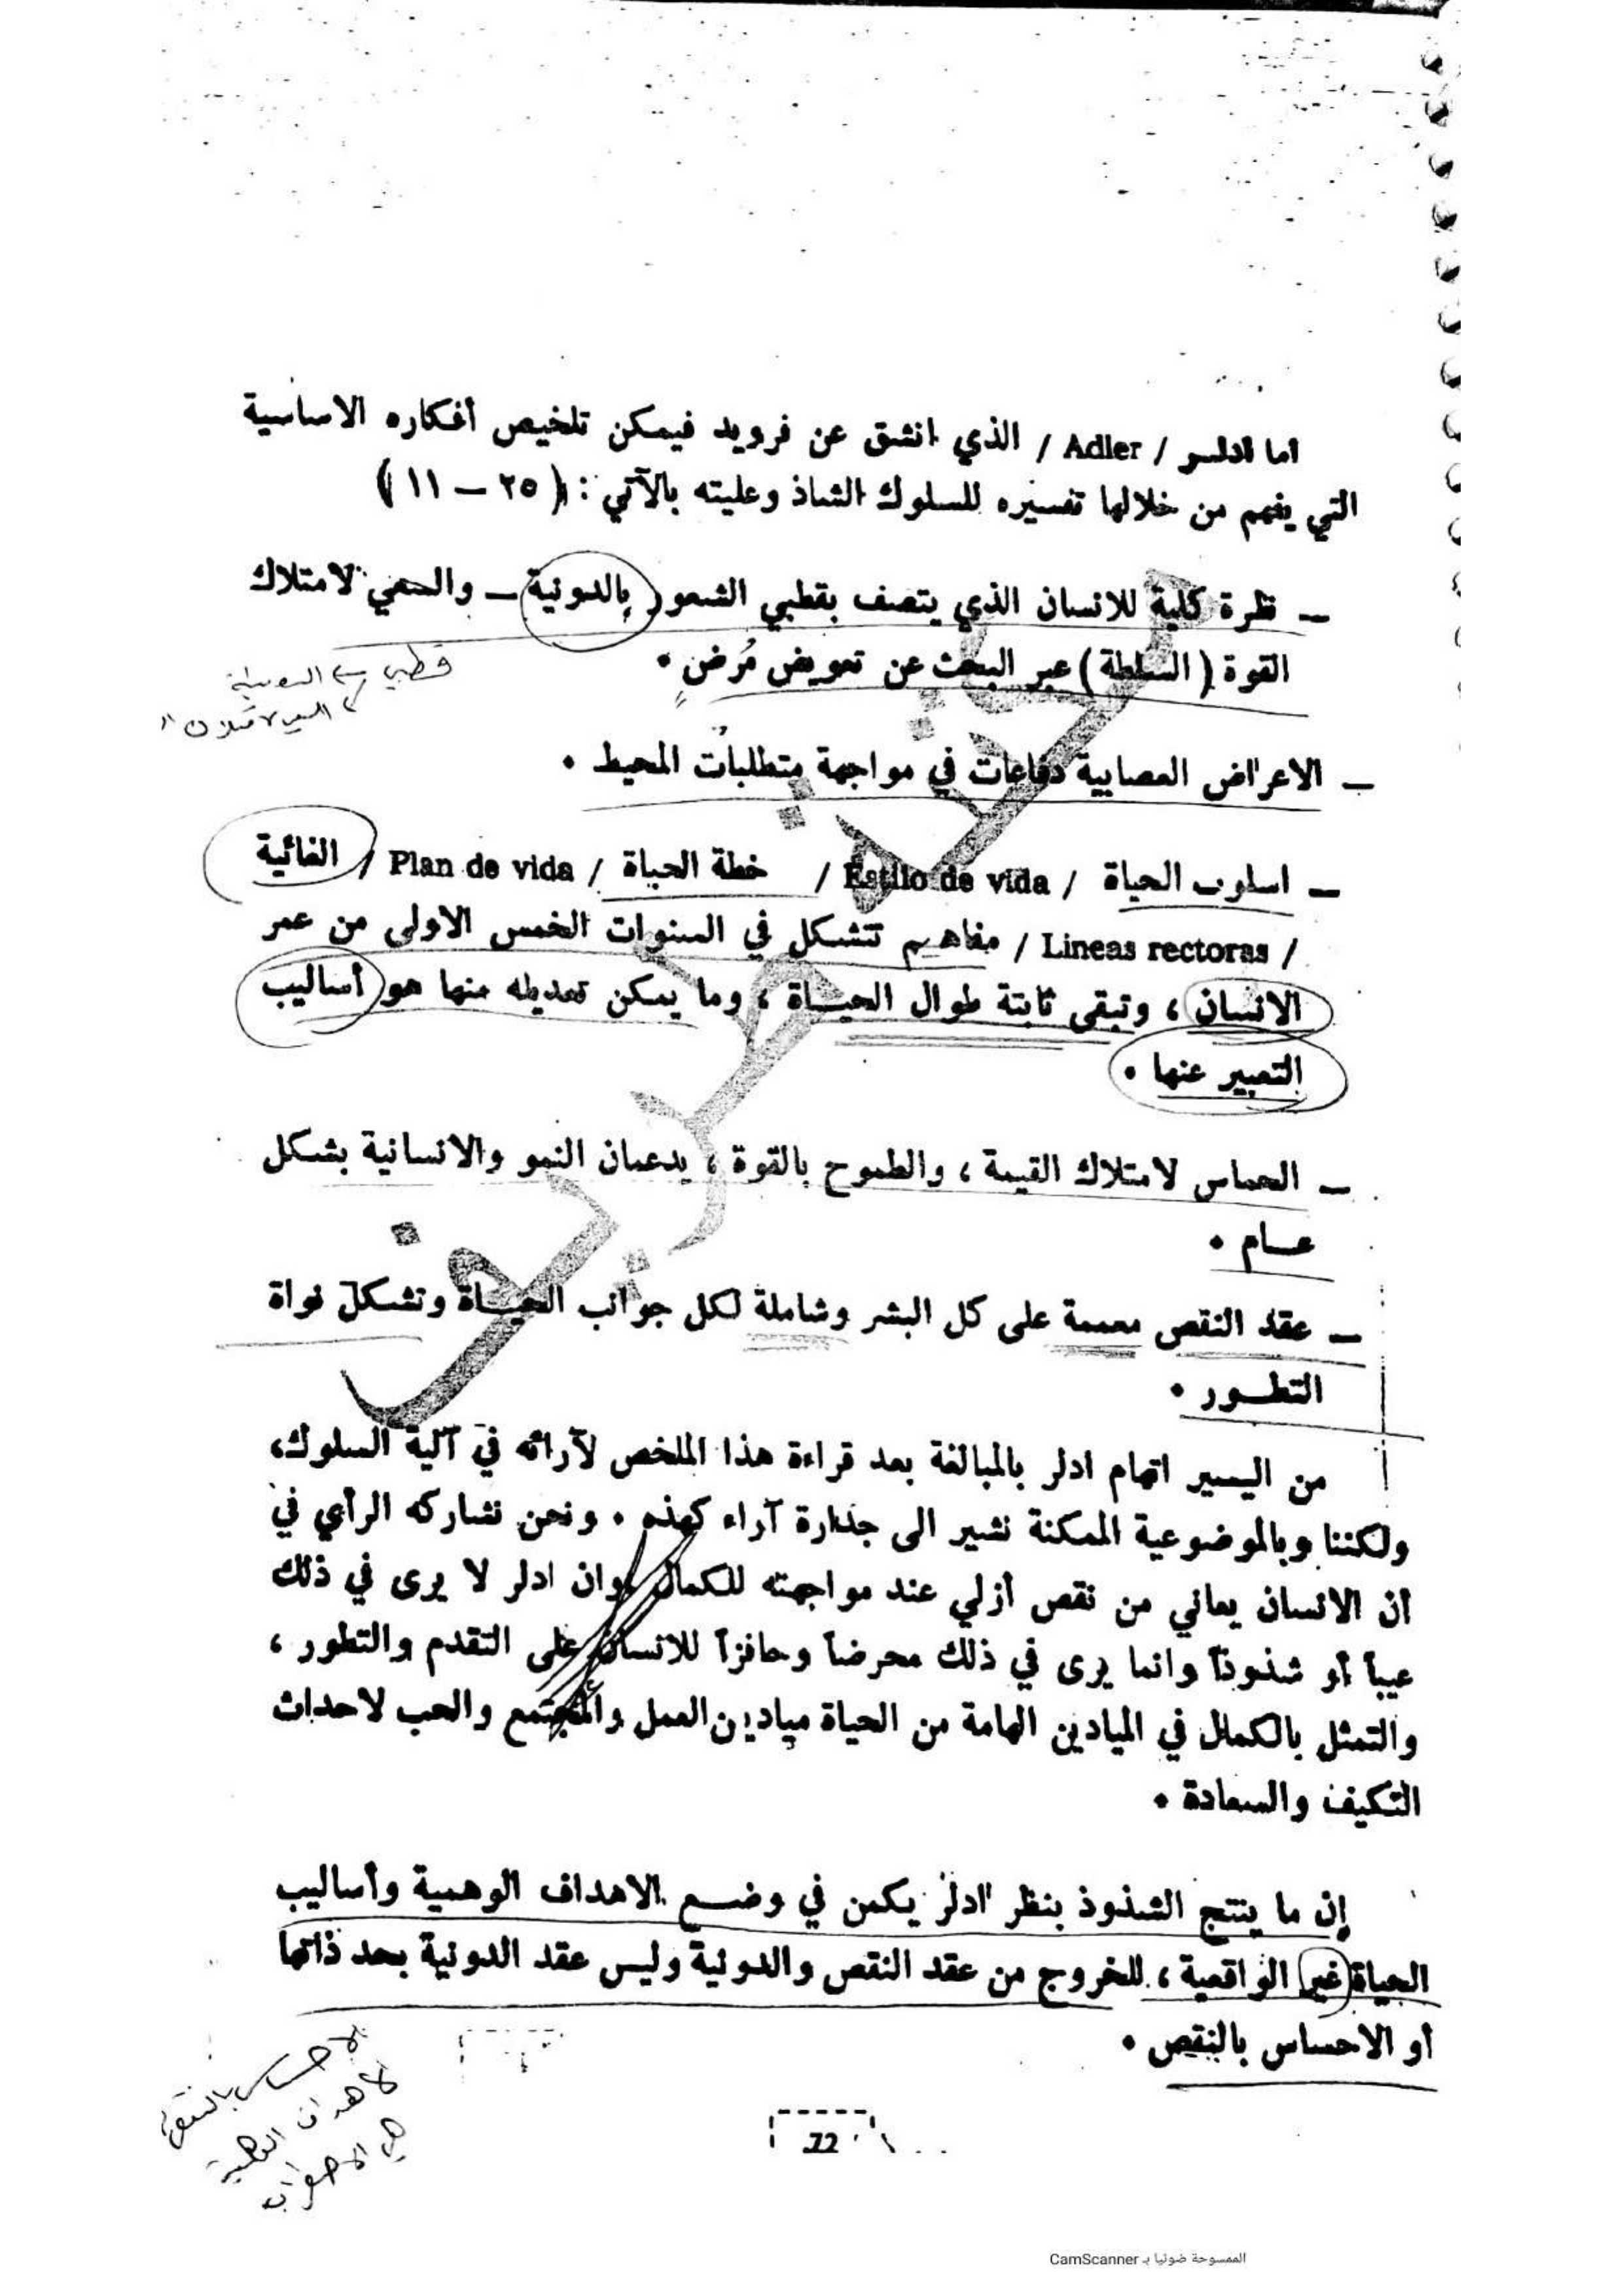 اما ادلر / Adler / الذي انشق عن فرويد فيمكن تلخيص أفكاره الاساسية
التي يفهم من خلالها تفسيره للسلوك الشاذ وعليته بالآتي : ( ٢٥ – ١١ )
– نظرة كلية للانسان الذي يتصف بقطبي الشعور بالدونية – والسعي لامتلاك
القوة ( السلطة ) عبر البحث عن تعويض مُرضٍ .
قطبي الدونية
السعي لامتلاك
– الاعراض العصابية دفاعات في مواجهة متطلبات المحيط .
– اسلوب الحياة / Estilo de vida / خطة الحياة / Plan de vida / الغائية
/ Lineas rectoras / مفاهيم تتشكل في السنوات الخمس الاولى من عمر
الانسان ، وتبقى ثابتة طوال الحياة ، وما يمكن تعديله منها هو أساليب
التعبير عنها .
– الحماس لامتلاك القيمة ، والطموح بالقوة ، يدعمان النمو والانسانية بشكل
عام .
– عقد النقص معممة على كل البشر وشاملة لكل جوانب الحياة وتشكل نواة
التطور .
من اليسير اتهام ادلر بالمبالغة بعد قراءة هذا الملخص لآرائه في آلية السلوك،
ولكننا وبالموضوعية الممكنة نشير الى جدارة آراء كهذه . ونحن نشاركه الرأي في
أن الانسان يعاني من نقص أزلي عند مواجهته للكمال وان ادلر لا يرى في ذلك
عيباً أو شذوذاً وانما يرى في ذلك محرضاً وحافزاً للانسان على التقدم والتطور ،
والتمثل بالكمال في الميادين الهامة من الحياة ميادين العمل والمجتمع والحب لاحداث
التكيف والسعادة .
إن ما ينتج الشذوذ بنظر ادلر يكمن في وضع الاهداف الوهمية وأساليب
الحياة غير الواقعية ، للخروج من عقد النقص والدونية وليس عقد الدونية بحد ذاتها
أو الاحساس بالنقص .
الاحساس بالنقص
الاهداف الوهمية
هي
72
الممسوحة ضوئيا بـ CamScanner